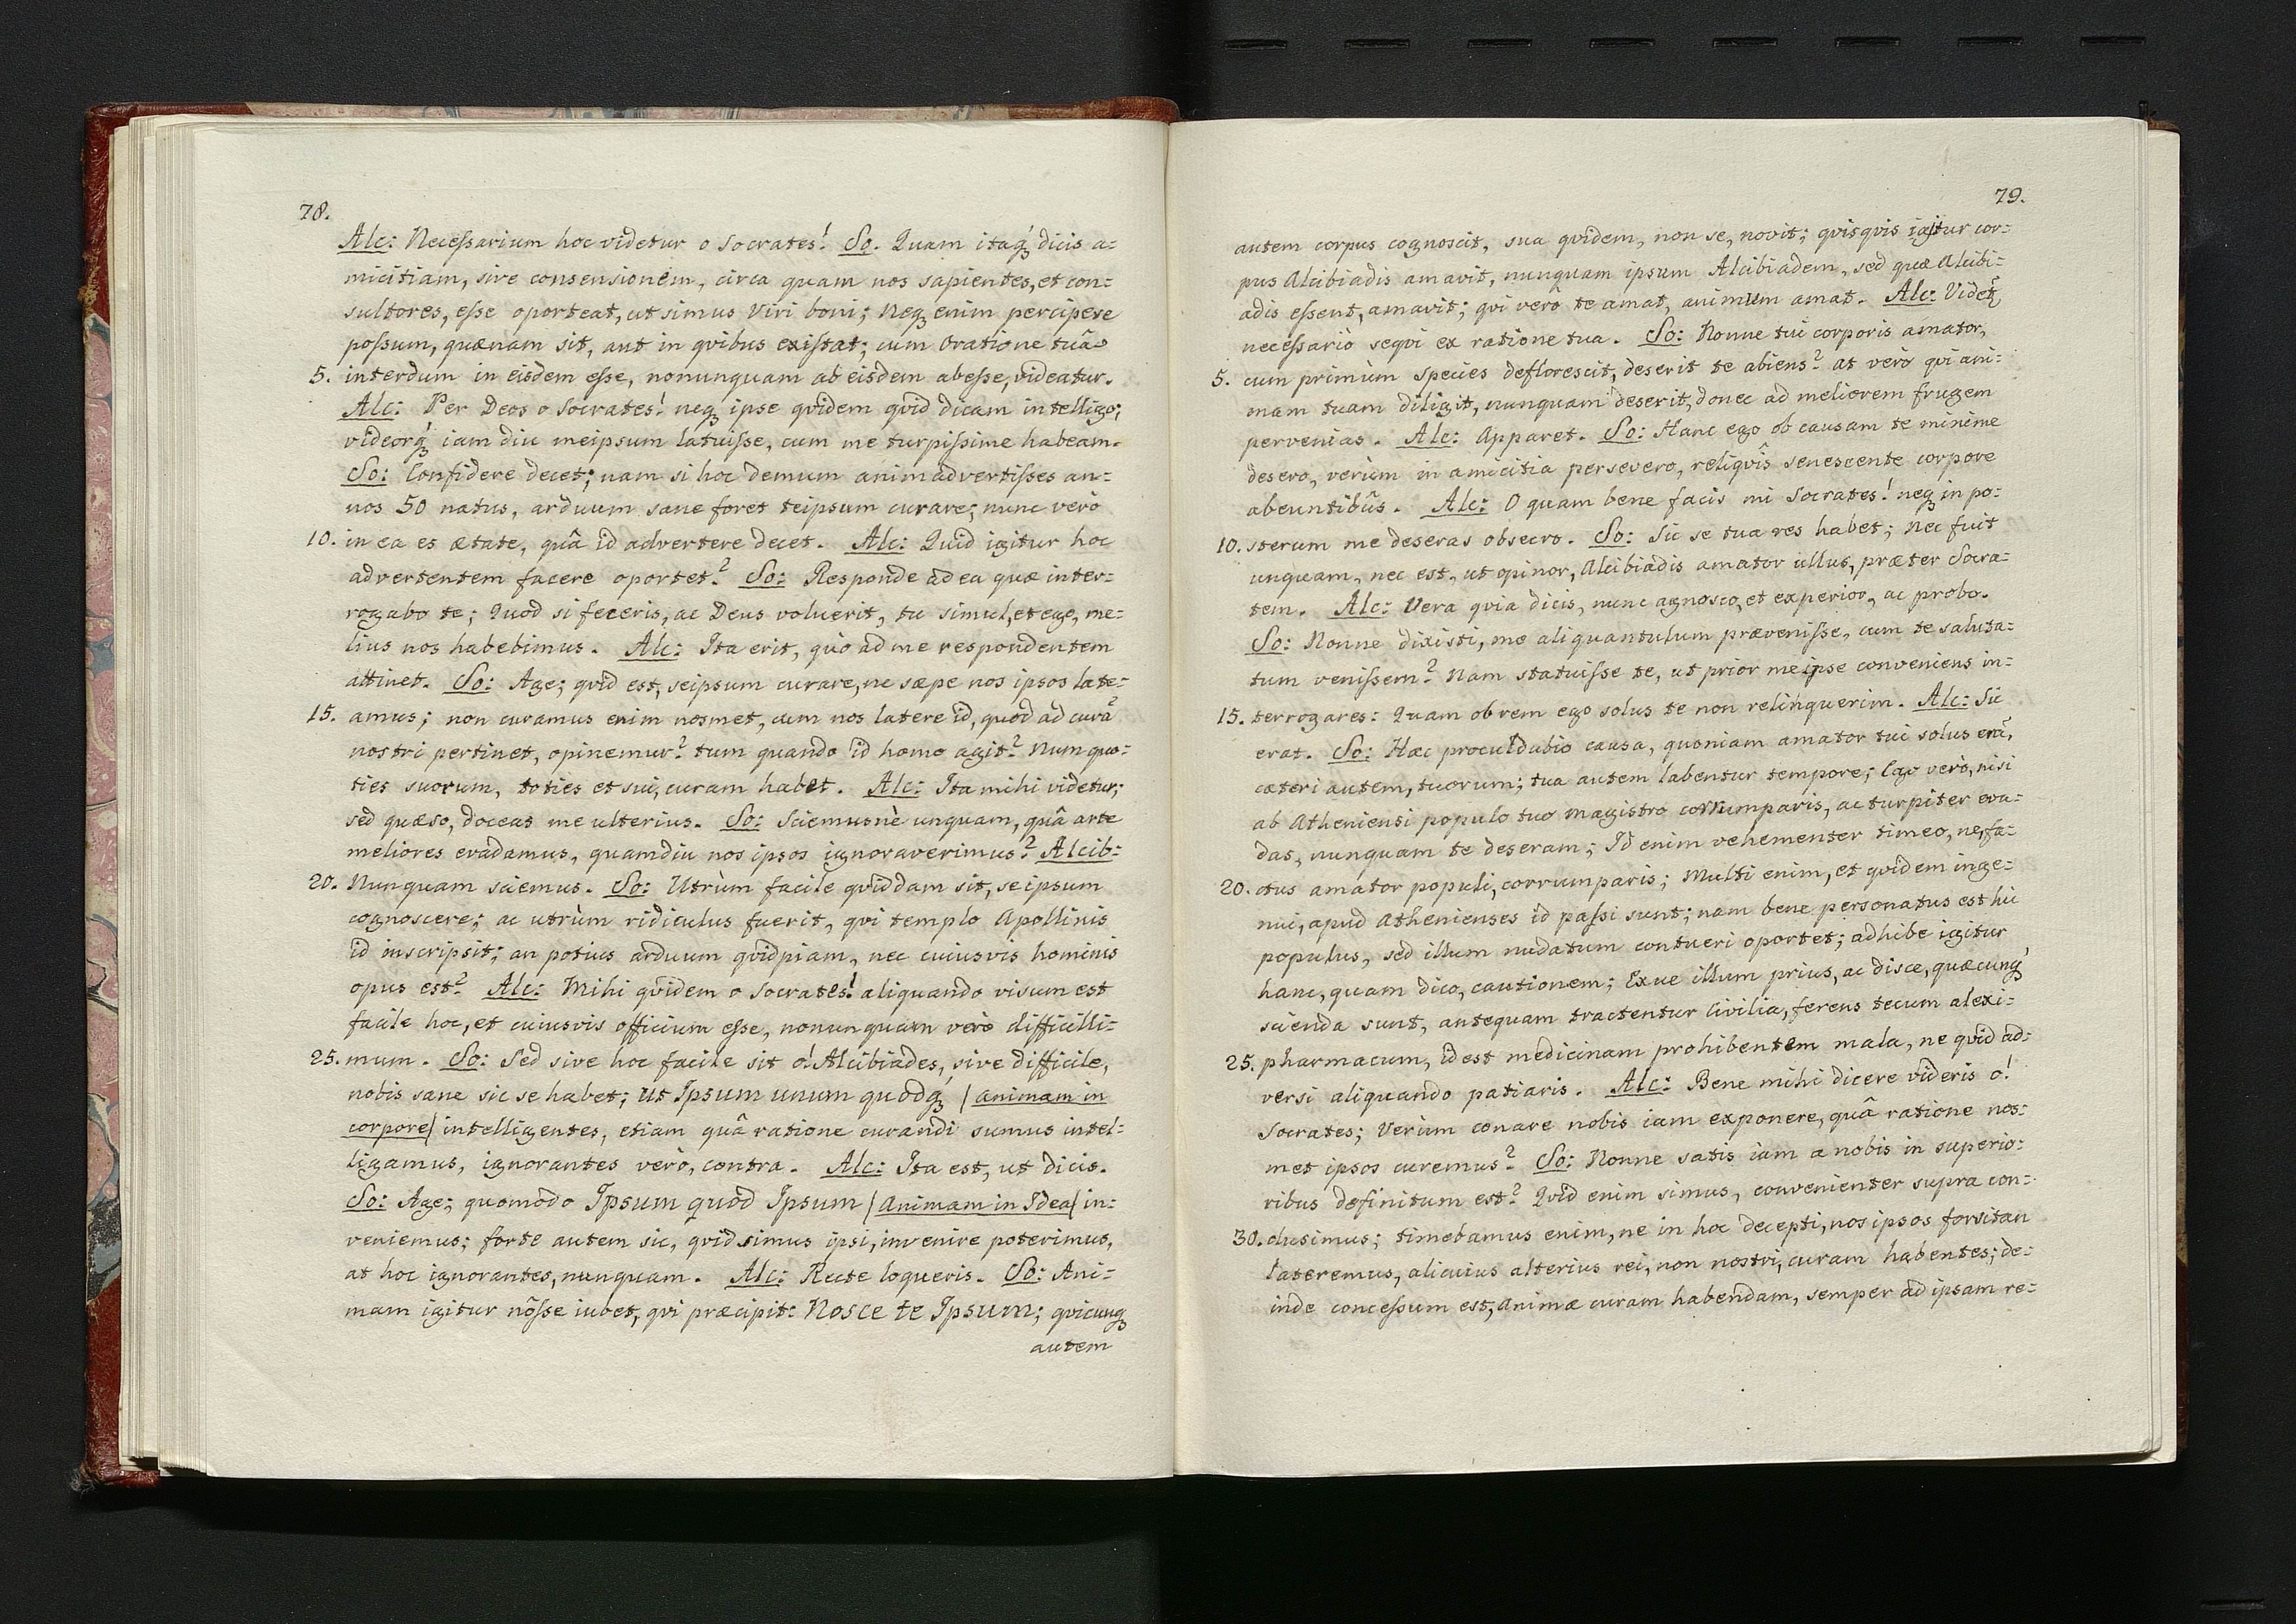 78.
Alc: Necessarium hoc videtur o Socrates! So. Quam itaq́ꝫ dicis a=
micitiam, sive consensionem, circa quam nos sapientes, et con=
sultores, esse oporteat, ut simus Viri boni; Neqꝫ enim percipere
possum, quænam sit, aut in qvibus existat; cum Oratione tuâ
5. interdum in eisdem esse, nonunquam ab eisdem abesse, videatur.
Alc: Per Deos o Socrates! neqꝫ ipse qvidem qvid dicam intelligo;
videorq́ꝫ iam diu meipsum latuisse, cum me turpissime habeam.
So: Confidere decet; nam si hoc demum animadvertisses an=
nos 50 natus, arduum sane foret teipsum curare; nunc verò
10. in ea es ætate, quâ id advertere decet. Alc: Quid igitur hoc
advertentem facere oportet? So: Responde ad ea quæ inter=
rogabo te; Quod si feceris, ac Deus voluerit, tu simul, et ego, me=
lius nos habebimus. Alc: Ita erit, quò ad me respondentem
attinet. So: Age; qvid est, seipsum curare, ne sæpe nos ipsos late=
15. amus; non curamus enim nosmet, cum nos latere id, quod ad curã
nostri pertinet, opinemur? tum quando id homo agit? Num quo=
ties suorum, toties et sui, curam habet. Alc: Ita mihi videtur;
sed quæso, doceas me ulterius. So: Sciemusnè unquam, quâ arte
meliores evadamus, quamdiu nos ipsos ignoraverimus? Alcib:
20. Nunquam sciemus. So: Utrùm facile qviddam sit, seipsum
cognoscere; ac utrùm ridiculus fuerit, qvi templo Apollinis
id inscripsit; an potius arduum qvidpiam, nec cuiusvis hominis
opus est? Alc: Mihi qvidem o Socrates! aliquando visum est
facile hoc, et cuiusvis officium esse, nonunquam verò difficilli=
25. mum. So: Sed sive hoc facile sit o! Alcibiades, sive difficile,
nobis sane sic se habet; ut Ipsum unum quodq́ꝫ | animam in
corpore| intelligentes, etiam quâ ratione curandi sumus intel=
ligamus, ignorantes verò, contra. Alc: Ita est, ut dicis.
So: Age; quomodo Ipsum quod Ipsum | Animam in Idea| in=
veniemus; forte autem sic, qvid simus ipsi, invenire poterimus,
at hoc ignorantes, nunquam. Alc: Recte loqueris. So: Ani=
mam igitur nôsse iubet, qvi præcipit: Nosce te Ipsum; qvicunqꝫ
autem
79.
autem corpus cognoscit, sua qvidem, non se, novit; qvisqvis igitur cor=
pus Alcibiadis amavit, nunquam ipsum Alcibiadem, sed quæ Alcibi=
adis essent, amavit; qvi verò te amat, animum amat. Alc: Videt̃,
necessariò seqvi ex ratione tua. So: Nonne tui corporis amator,
5. cum primùm species deflorescit, deserit te abiens? at verò qvi ani=
mam tuam diligit, nunquam deserit, donec ad meliorem frugem
pervenias. Alc: Apparet. So: Hanc ego ob causam te minime
desero, verùm in amicitia persevero, reliqvîs senescente corpore
abeuntibûs. Alc: O quam bene facis mi Socrates! neqꝫ in po=
10. sterum me deseras obsecro. So: Sic se tua res habet; Nec fuit
unquam, nec est, ut opinor, Alcibiadis amator ullus, præter Socra=
tem. Alc: Vera qvia dicis, nunc agnosco, et experior, ac probo.
So: Nonne dixisti, me aliquantulum prævenisse, cum te saluta=
tum venissem? Nam statuisse te, ut prior me ipse conveniens in=
15. terrogares: Quam ob rem ego solus te non relinquerim. Alc: Sic
erat. So: Hæc proculdubio causa, quoniam amator tui solus erã,
cæteri autem, tuorum; tua autem labentur tempore; Ego verò, nisi
ab Atheniensi populo tuo magistro corrumparis, ac turpiter eva=
das, nunquam te deseram; Id enim vehementer timeo, ne, fa=
20. ctus amator populi, corrumparis; Multi enim, et qvidem inge=
nui, apud Athenienses id passi sunt; nam bene personatus est hic
populus, sed illum nudatum contueri oportet; adhibe igitur
hanc, quam dico, cautionem; Exue illum prius, ac disce, quæcunq́ꝫ
scienda sunt, antequam tractentur Civilia, ferens tecum alexi=
25. pharmacum, id est medicinam prohibentem mala, ne qvid ad=
versi aliquando patiaris. Alc: Bene mihi dicere videris o!
Socrates; Verùm conare nobis iam exponere, quâ ratione nos=
met ipsos curemus? So: Nonne satis iam a nobis in superio=
ribus definitum est? Qvid enim simus, convenienter supra con=
30. clusimus; timebamus enim, ne in hoc decepti, nos ipsos forsitan
lateremus, alicuius alterius rei, non nostri, curam habentes; de=
inde concessum est, Animæ curam habendam, semper ad ipsam re=